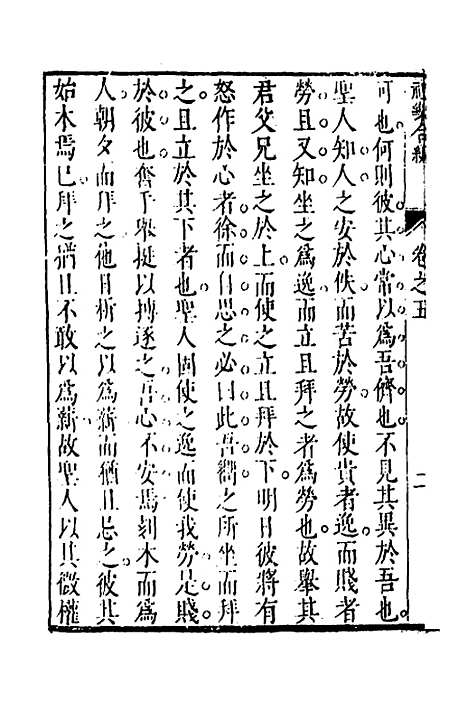 卷之五
二
可也何則彼其心常以爲吾儕也不見其異於吾也
聖人知人之安於佚而苦於勞故使貴者逸而賤者
勞且又知坐之爲逸而立且拜之者爲勞也故舉其
君父兄坐之於上而使之立且拜於下明日彼將有
怒作於心者徐而自思之必曰此吾嚮之所坐而拜
之且立於其下者也聖人固使之逸而使我勞是賤
於彼也奮手舉挺以搏逐之吾心不安焉刻木而爲
人朝夕而拜之他日析之以爲薪而猶且忌之彼其
始木焉已拜之猶且不敢以爲薪故聖人以其微權